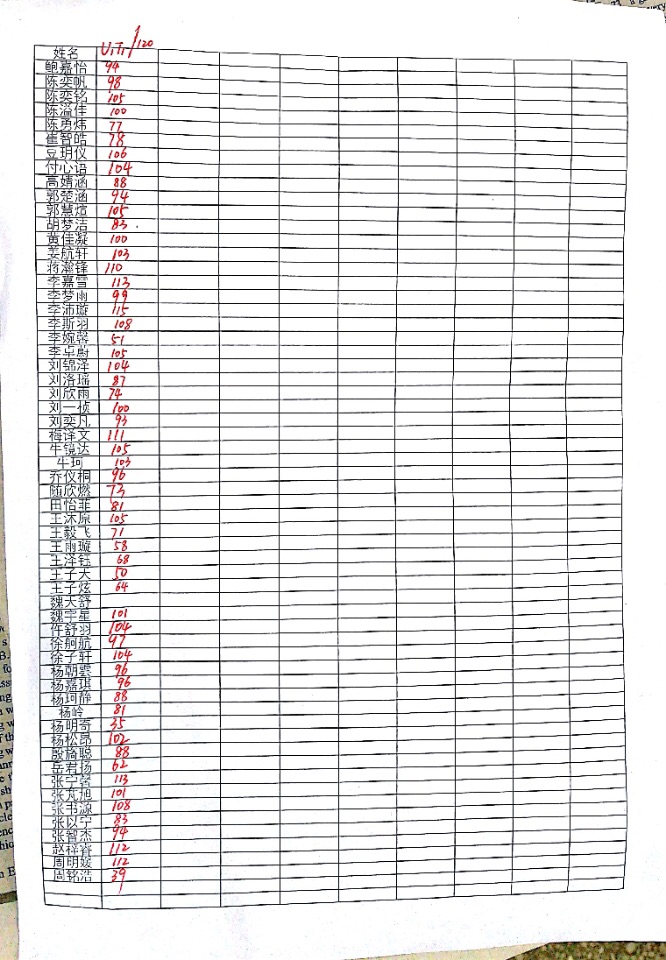 姓名 U1T1/120
鲍嘉怡 94
陈奕帆 98
陈奕铭 105
陈溢佳 100
陈勇炜 77
崔智皓 78
豆玥仪 106
付心语 104
高婧涵 88
郭楚涵 94
郭慧煊 105
胡梦洁 83
黄佳凝 100
姜航轩 103
蒋瀚锋 110
李嘉雪 113
李梦雨 99
李沛璇 115
李斯羽 108
李婉馨 51
李卓蔚 105
刘锦泽 104
刘洛瑶 87
刘欣雨 74
刘一侦 100
刘奕凡 93
梅译文 111
牛镜达 105
牛珂 103
乔仪桐 96
随欣燃 73
田怡菲 81
王沐原 105
王毅飞 71
王雨璇 58
王泽钰 68
王子大 50
王子炫 64
魏天舒
魏宇星 101
许舒羽 104
徐舸航 97
徐子轩 104
杨朝雲 96
杨嘉琪 96
杨珂静 88
杨岭 81
杨明奇 35
杨松昂 102
殷旖聪 88
岳君扬 62
张宁馨 113
张芃旭 101
张韦源 108
张以宁 83
张智杰 94
赵梓睿 112
周明媛 112
周铭浩 39